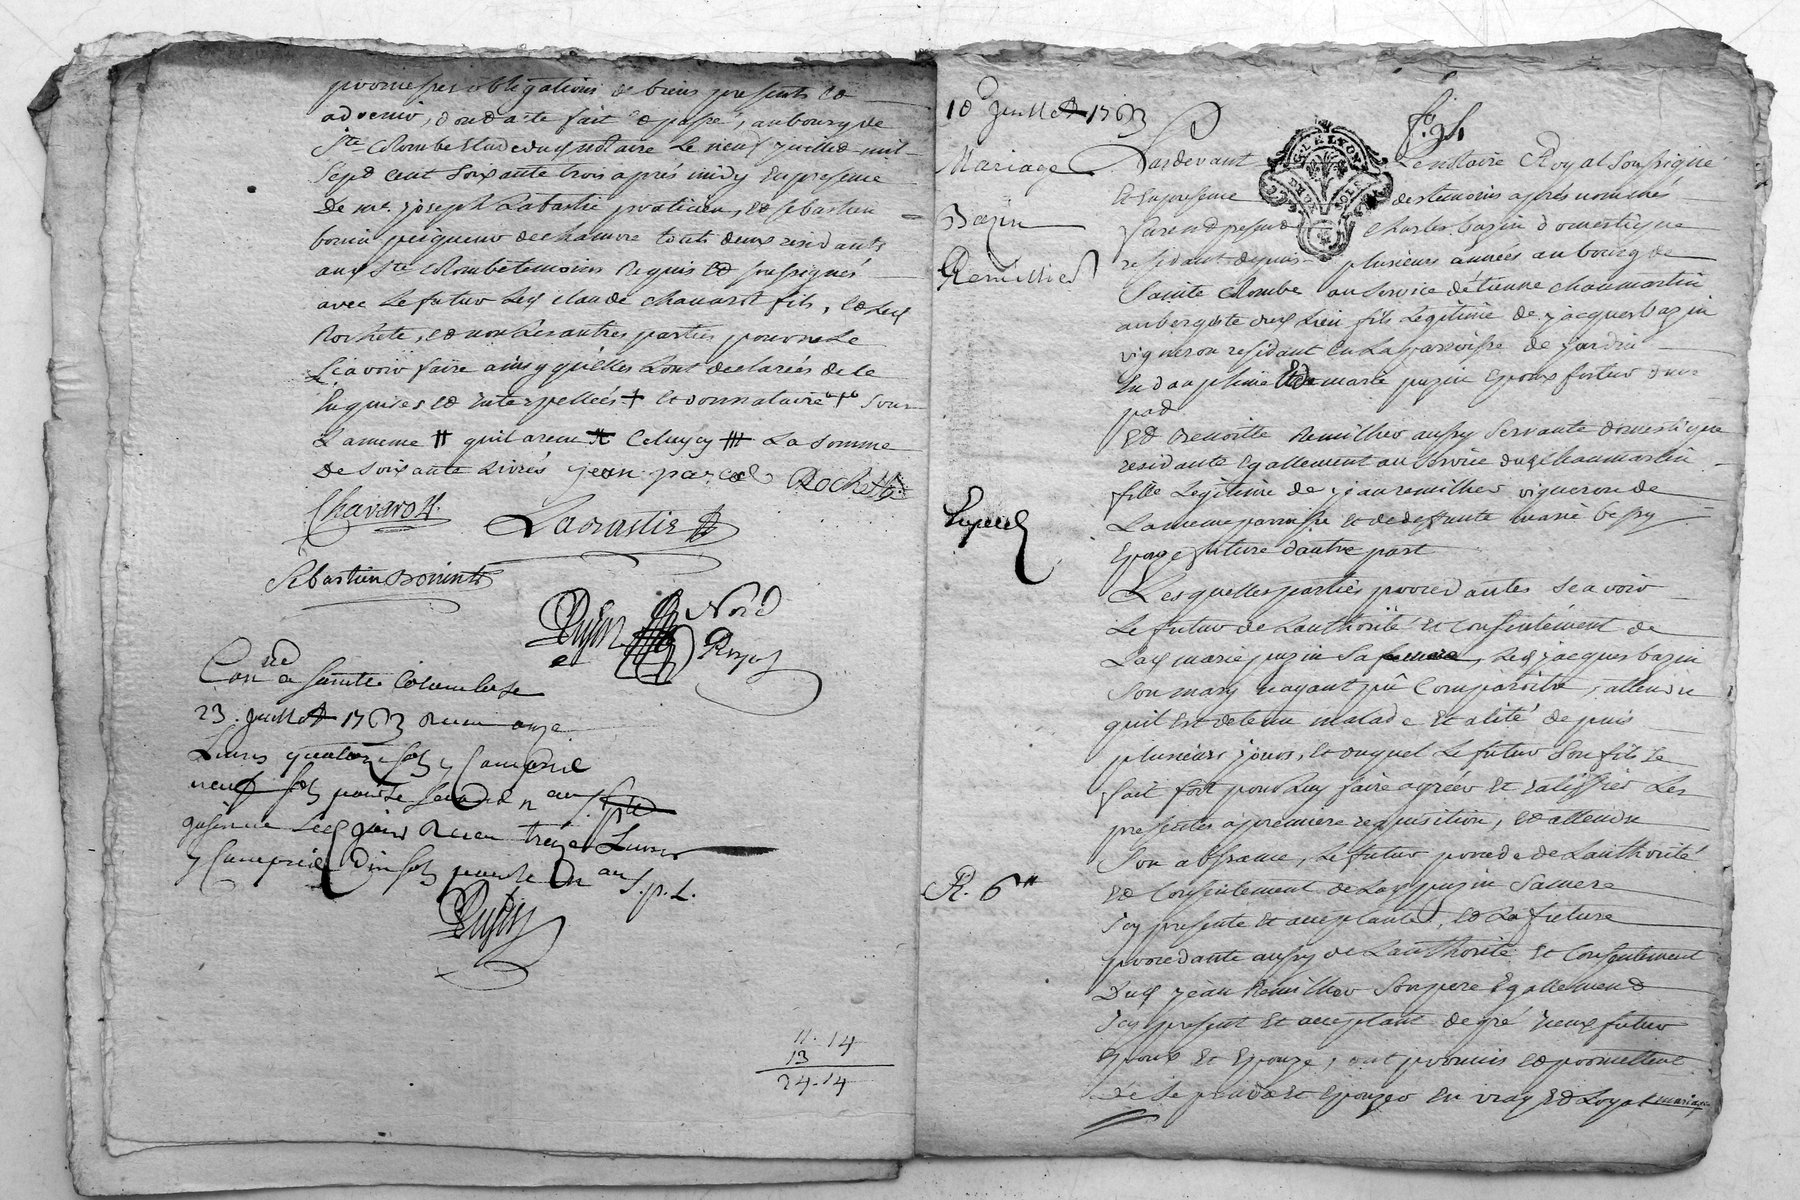 promesses obligations de biens presents et
advenir, dond acte fait et passé, au bourg de
Ste Colombe Etude duq notaire Le neuf juillet mil
Sept cent soixante trois aprés midy En presence
De me. joseph Labastie praticien, et sebastien
bonin peigneur de chanvre touts deux residants
aud Ste Colombe temoins Requis et soussignés
avec Le futur Led claude chavarot fils, et led
Rochete, et non Les autres parties pour ne Le
Sçavoir faire ainsy qu'elles L'ont declarées de ce
Enquises et interpellées + et donnataire + sous
La meme # quil a recu # Celuy cy # La somme
De soixante Livres jean pascal Rochette
Chavarot.
Labastie
Sebastien Bonin
Dujon Nore
Royal
Con.lle a Sainte Colombe Le
23. Juillet 1763 Recu onze
Livres quatorze sols y Compris
neuf sols pour Le
Recu treize Livres
y Compris Dix sols pour Le Dn au S.p.L.
Dujon
11. 14
13
24. 14
10 Juillet 1763
Mariage
Bazin
Remillier
Expedé
R. 6#
G. LE LYON
Pardevant Le notaire Royal soussigné
Et En presence des temoins aprés nommés
Furend presend Charles bazin domestique
residant depuis plusieurs années au bourg de
Sainte Colombe au service d'etienne chaumartin
aubergiste dud Lieu fils Legitime de jacques bazin
vigneron residant En La parroisse de jardin
En dauphiné Et de marie puzin Epoux futur d'une
pad
Et Benoitte Remillier aussy servante domestique
residante Egallement au service dud Chaumartin
fille Legitime de jean remillier vigneron de
La meme parroisse Et de deffunte marie bessy
Epouze future d'autre part
Lesquelles parties procedantes Sçavoir
Le futur de L'authorité Et Consentement de
Lad marie puzin Sa mere, Led jacques bazin
Son mary n'ayant pû Comparoitre, attendu
quil Est detenu malade Et alité depuis
plusieurs jours, Et duquel Le futur Son fils se
fait fort pour Luy faire agréer Et ratiffier Les
presentes a premiere requisition, Et attendu
Son absence, Le futur procede de L'authorité
Et Consentement de Lad puzin Sa mere
Icy presente Et acceptante, Et La future
procedante aussy de L'authorité Et Consentement
Dud jean Remillier Son pere Egallemend
Icy present Et acceptant de gré iceux futur
Epoux Et Epouze, ont promis Et promettent
de Se prendre Et Epouzer En vray Et Loyal mariage